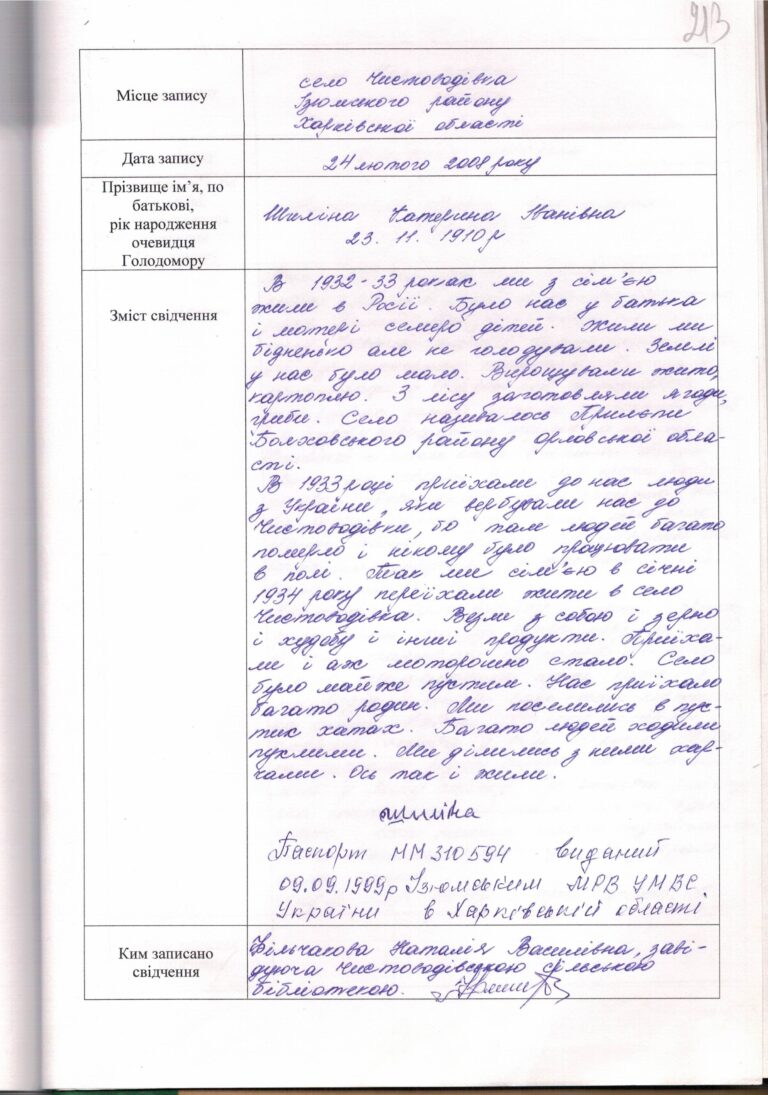 213
Місце запису
село Чистоводівка
Ізюмського району
Харківської області
Дата запису
24 лютого 2008 року
Прізвище ім’я, по
батькові,
рік народження
очевидця
Голодомору
Шиліна Катерина Іванівна
23. 11. 1910р
Зміст свідчення
В 1932-33 роках ми з сім’єю
жили в Росії. Було нас у батька
і матері семеро дітей. Жили ми
бідненько але не голодували. Землі
у нас було мало. Вирощували жито,
картоплю. З лісу заготовляли ягоди,
гриби. Село називалось
Болховського району орловської обла-
сті.
В 1933 році приїхали до нас люди
з України, яки вербували нас до
Чистоводівки, бо там людей багато
померло і нікому було працювати
в полі. Так ми сім’єю в січні
1934 року переїхали жити в село
Чистоводівка. Везли з собою і зерно
і худобу і інші продукти. Приїха-
ли і аж моторошно стало. Село
було майже пустим. Нас приїхало
багато родин. Ми поселились в пус-
тих хатах. Багато людей ходили
пухлими. Ми ділились з ними хар-
чами. Ось так і жили.
Шиліна
Паспорт ММ 310594 виданий
09.09.1999р Ізюмським МРВ УМВС
України в Харківській області
Ким записано
свідчення
Фільчакова Наталія Василівна, заві-
дуюча Чистоводівською сільською
бібліотекою.